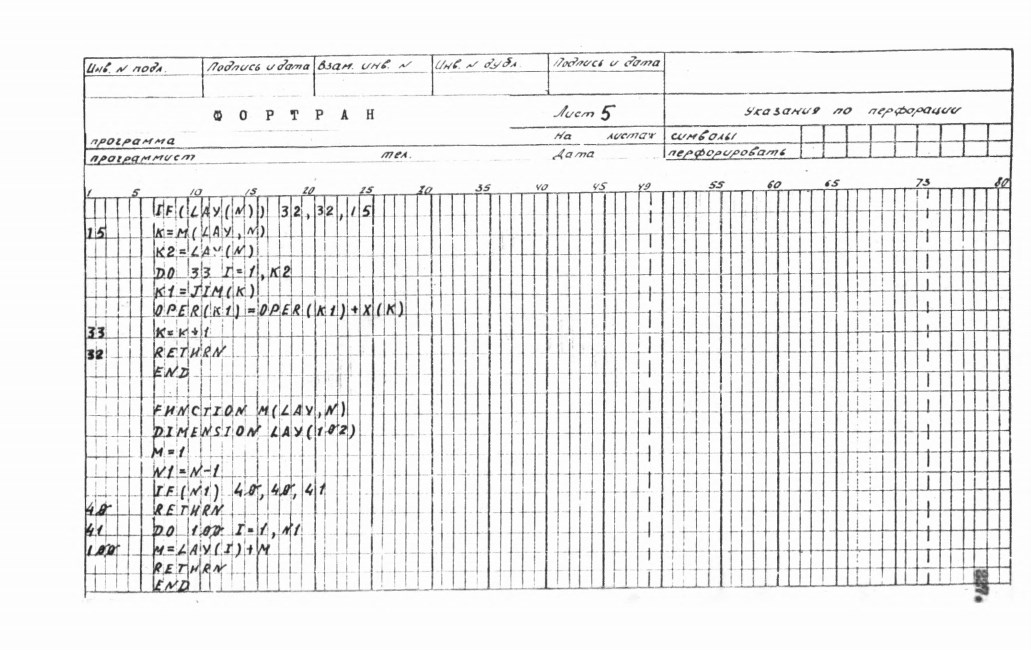 Инв. N подл. Подпись и дата Взам. инв. N Инв. N дубл. Подпись и дата
ФОРТРАН Лист 5 Указания по перфорации
программа На листах символы
программист тел. Дата перфорировать
1 5 10 15 20 25 30 35 40 45 49 55 60 65 73 80
IF(LAY(N)) 32,32,15
15 K=M(LAY,N)
K2=LAY(N)
DO 33 I=1,K2
K1=JIM(K)
OPER(K1)=OPER(K1)+X(K)
33 K=K+1
32 RETURN
END
FUNCTION M(LAY,N)
DIMENSION LAY(102)
M=1
N1=N-1
IF(N1) 40,40,41
40 RETURN
41 DO 100 I=1,N1
100 M=LAY(I)+M
RETURN
END